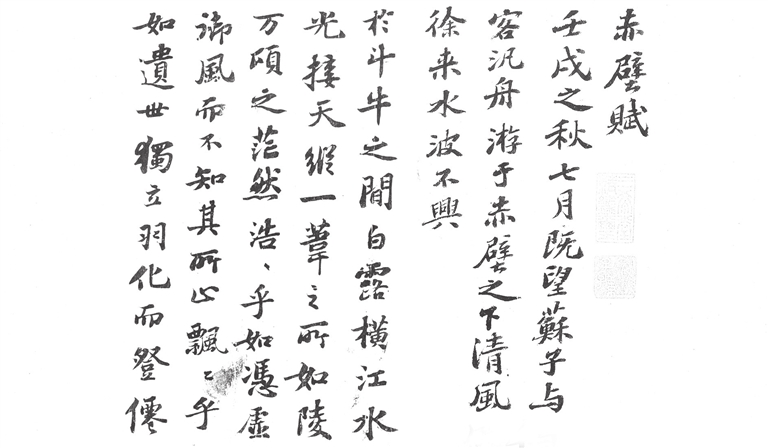 赤壁賦
壬戌之秋七月既望蘇子与
客汎舟游于赤壁之下清風
徐来水波不興
於斗牛之間白露横江水
光接天縱一葦之所如陵
万頃之茫然浩〻乎如憑虛
御風而不知其所止飄〻乎
如遺世獨立羽化而登僊